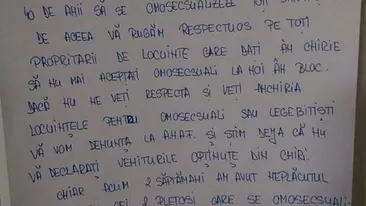 40 DE AHII SĂ SE OMOSECSUALIZEZE TOȚI
DE ACEEA VĂ RUGĂM RESPECTUOS PE TOȚI
PROPRITARII DE LOCUINTE CARE DATI ÂH CHIRIE
SĂ HU MAI ACEPTATI OMOSECSUALI LA HOI ÂH BLOC.
DACĂ HU HE VEȚI RESPECTA ȘI VEȚI ÂHCHIRIA
LOCUINTELE PEHTRU OMOSECSUALI SAU LEGEBITISTI
VĂ VOM DEHUHTA LA A.H.A.F. ȘI ȘTIM DEJA CĂ HU
VĂ DECLARAȚI VEHITURILE OPTIHUTE DIH CHIRI.
CHIAR ACUM 2 SĂPTĂMÂHI AM AVUT HEPLĂCUTUL
2 PLETOSI CARE SE OMOSECSUALI